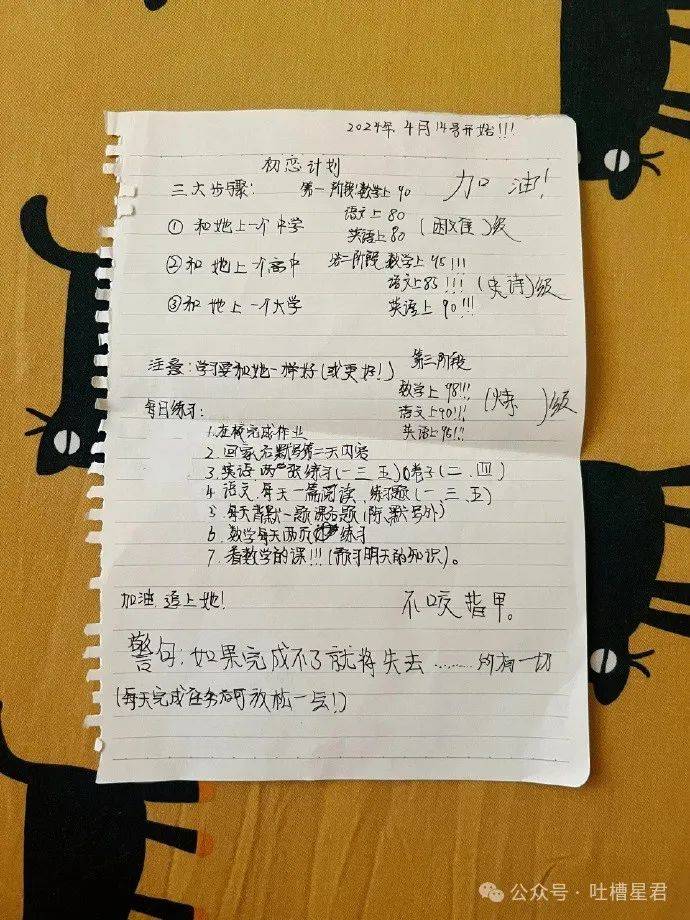 2024年4月14号开始!!!
初恋计划
加油!
三大步骤: 第一阶段数学上90
语文上80
① 和她上一个中学 英语上80 (困难)级
② 和她上一个高中 第二阶段 数学上95!!!
语文上85!!! (史诗)级
③ 和她上一个大学 英语上90!!!
第三阶段
注意:学习要和她一样好(或更好!)
数学上98!!!
语文上90!!! (炼 )级
英语上95!!!
每日练习:
1.在校完成作业
2.回家后默写第二天内容
3.英语 两 张练习(一 三 五) 卷子(二、四)
4 语文 每天一篇阅读、练习题(一、三、五)
5 每天背默一题 题(除 默写外)
6.数学每天两页 练习
7.看数学的课!!!(预习明天的知识)。
加油 追上她! 不咬指甲。
警句:如果完成不了就将失去……所有一切
(每天完成任务后可放松一会!)
公众号·吐槽星君